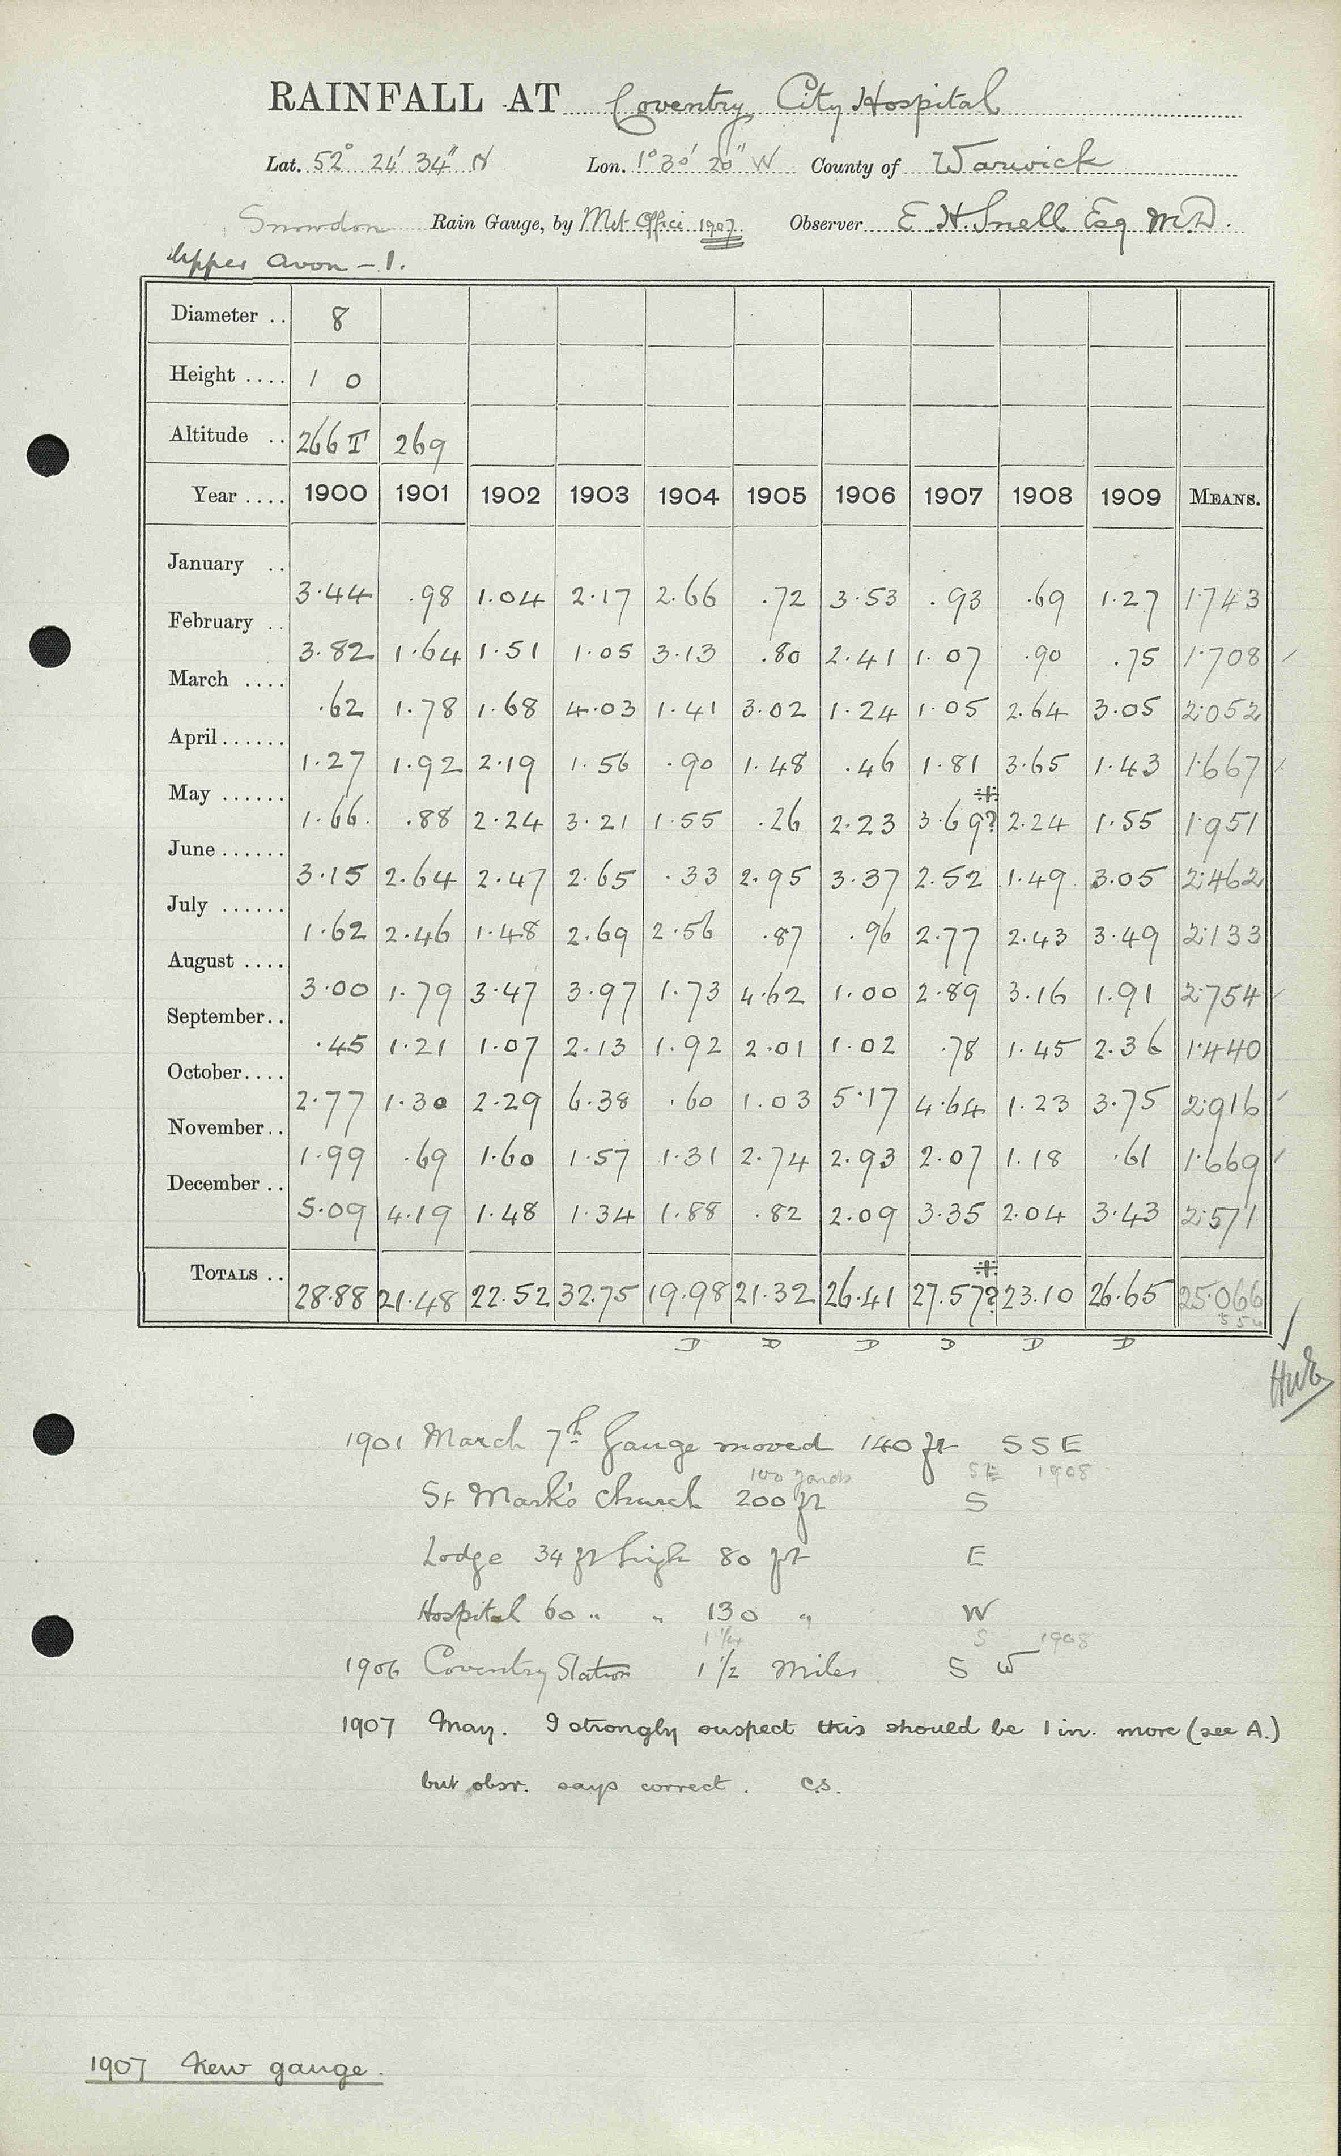 RAINFALL AT Coventry City Hospital
Lat. 52° 24' 34" N Lon. 1° 30' 20" W County of Warwick
Snowdon Rain Gauge, by Met. Office 1907 Observer E. H. Snell Esq M.D.
Upper Avon - 1.
Diameter .. 8
Height .... 1 0
Altitude .. 266 T 269
Year .... 1900 1901 1902 1903 1904 1905 1906 1907 1908 1909 MEANS.
January .. 3.44 .98 1.04 2.17 2.66 .72 3.53 .93 .69 1.27 1.743
February .. 3.82 1.64 1.51 1.05 3.13 .80 2.41 1.07 .90 .75 1.708
March .... .62 1.78 1.68 4.03 1.41 3.02 1.24 1.05 2.64 3.05 2.052
April ...... 1.27 1.92 2.19 1.56 .90 1.48 .46 1.81 3.65 1.43 1.667
May ...... 1.66 .88 2.24 3.21 1.55 .26 2.23 3.69? 2.24 1.55 1.951
June ...... 3.15 2.64 2.47 2.65 .33 2.95 3.37 2.52 1.49 3.05 2.462
July ...... 1.62 2.46 1.48 2.69 2.56 .87 .96 2.77 2.43 3.49 2.133
August .... 3.00 1.79 3.47 3.97 1.73 4.62 1.00 2.89 3.16 1.91 2.754
September.. .45 1.21 1.07 2.13 1.92 2.01 1.02 .78 1.45 2.36 1.440
October.... 2.77 1.30 2.29 6.38 .60 1.03 5.17 4.64 1.23 3.75 2.916
November.. 1.99 .69 1.60 1.57 1.31 2.74 2.93 2.07 1.18 .61 1.669
December .. 5.09 4.19 1.48 1.34 1.88 .82 2.09 3.35 2.04 3.43 2.571
TOTALS .. 28.88 21.48 22.52 32.75 19.98 21.32 26.41 27.57? 23.10 26.65 25.066
D D D D D D
1901 March 7th Gauge moved 140 ft SSE
100 yards SE 1908
St Mark's Church 200 ft S
Lodge 34 ft high 80 ft E
Hospital 60 " " 130 " W
1 1/4 S 1908
1906 Coventry Station 1 1/2 Miles S W
1907 May. I strongly suspect this should be 1 in. more (see A.)
but obsr. says correct. C.S.
1907 New gauge.